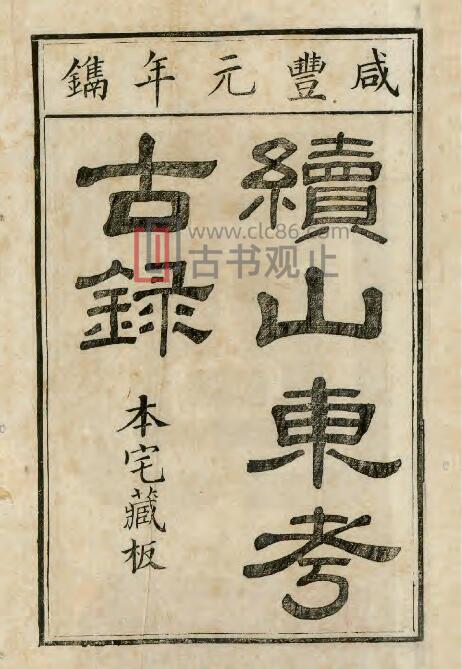 咸豐元年鐫
續山東考
古録
本宅藏板
www.clc86.com
古书观止